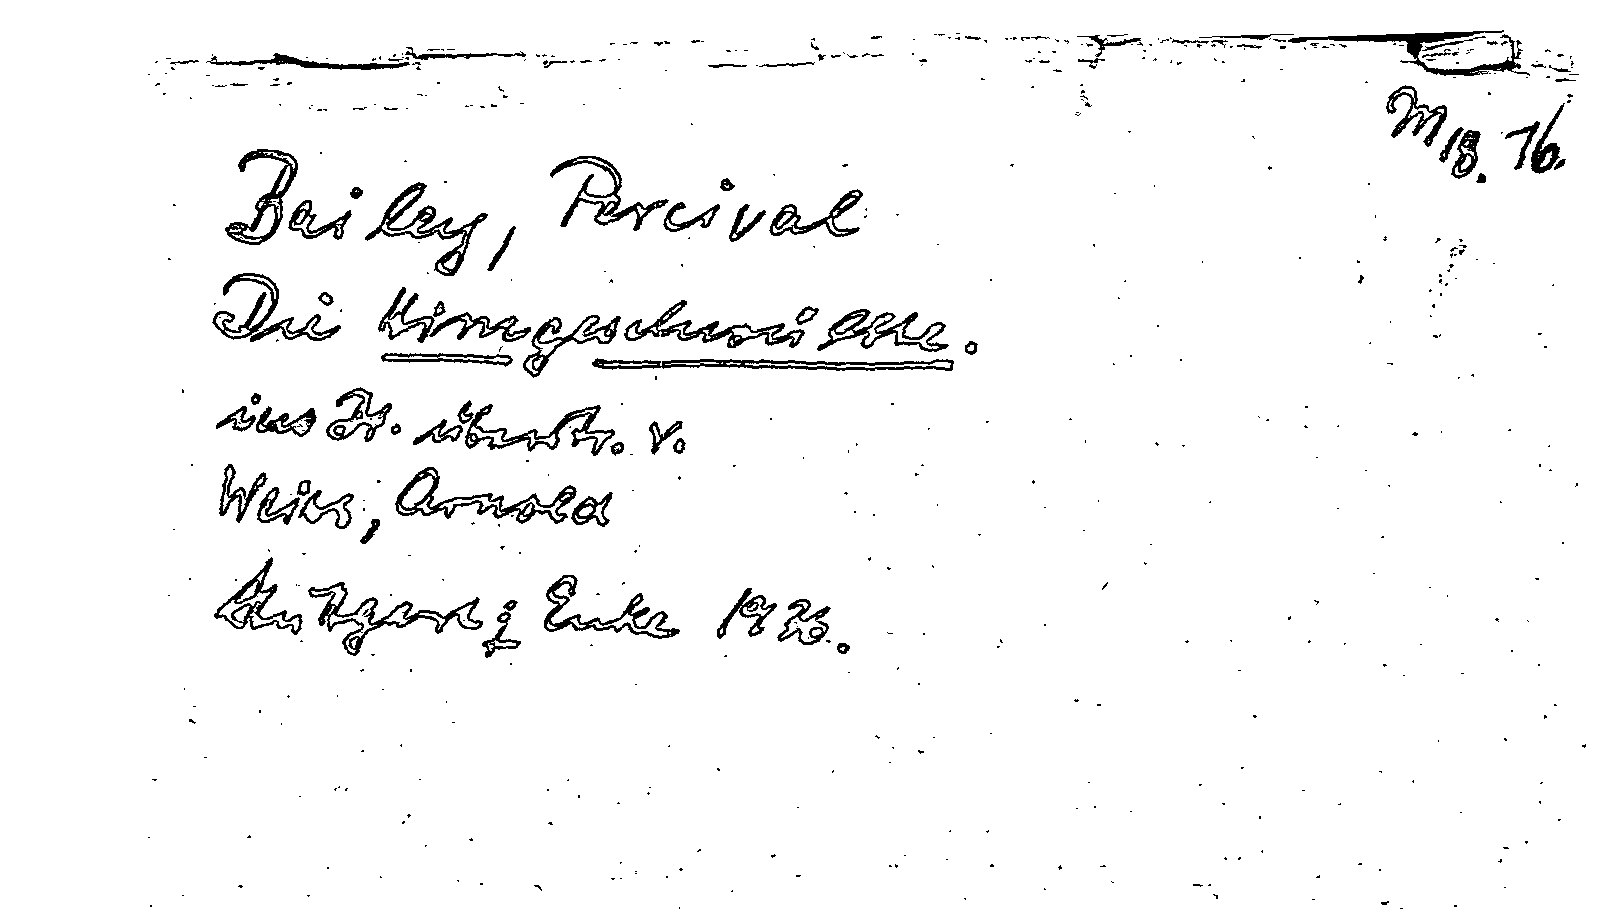 M 18. 76.
Bailey, Percival
Die Hirngeschwülste.
ins Dt. übertr. v.
Weiss, Arnold
Stuttgart: Enke 1936.